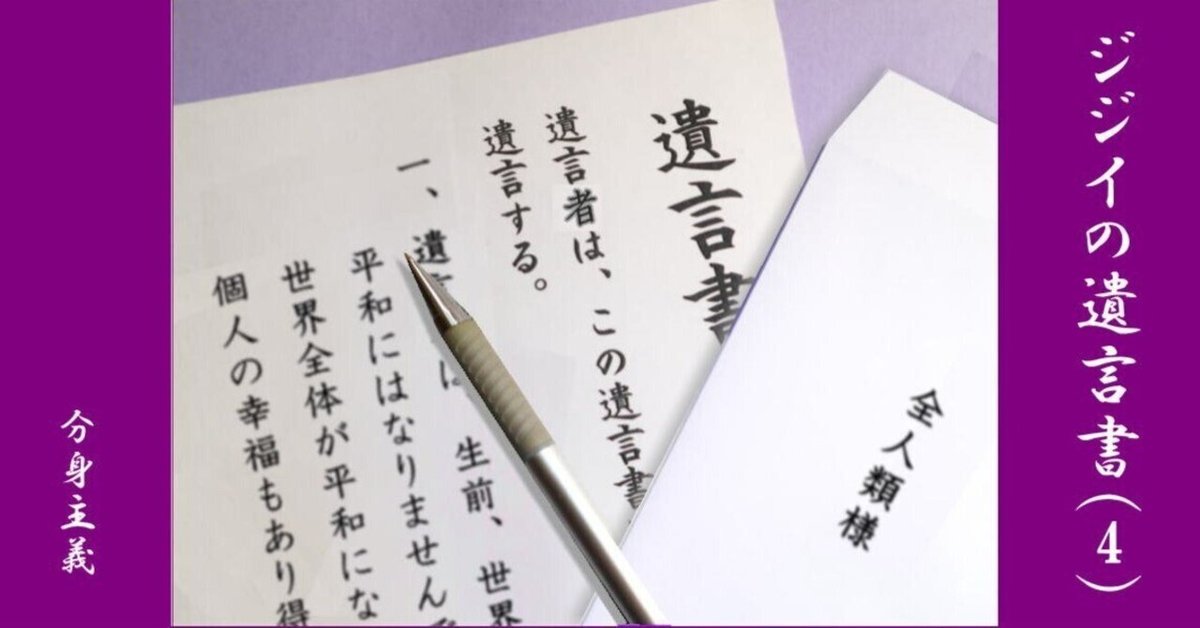 ジジイの遺言書(4)
全人類様
遺言書
遺言者は、この遺言書
遺言する。
一、遺
生前、世界
平和にはなりません
世界全体が平和にな
個人の幸福もあり得
分身主義